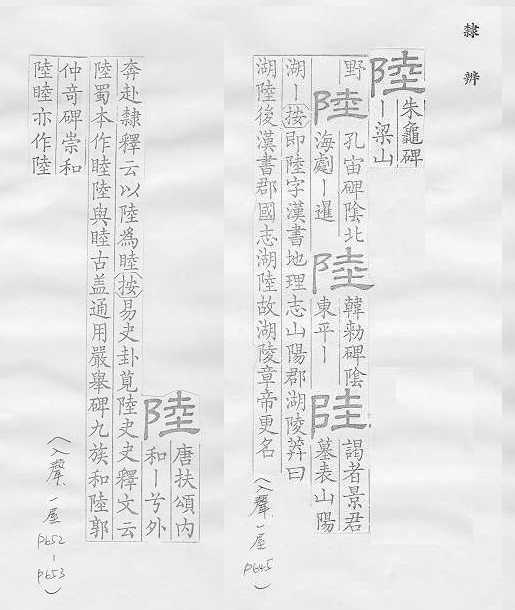 隸辨
陸 朱龜碑
丨梁山
野
陸 孔宙碑陰北
海劇丨暹
陸 韓勑碑陰
東平丨
陸 謁者景君
墓表山陽
湖丨按即陸字漢書地理志山陽郡湖陵莽曰
湖陸後漢書郡國志湖陸故湖陵章帝更名
(入聲 一屋 P645)
陸 唐扶頌内
和丨兮外
奔赴隸釋云以陸為睦按易史卦莧陸史史釋文云
陸蜀本作睦陸與睦古盖通用嚴舉碑九族和陸郭
仲奇碑崇和
陸睦亦作陸
(入聲 一屋 P652-P653)